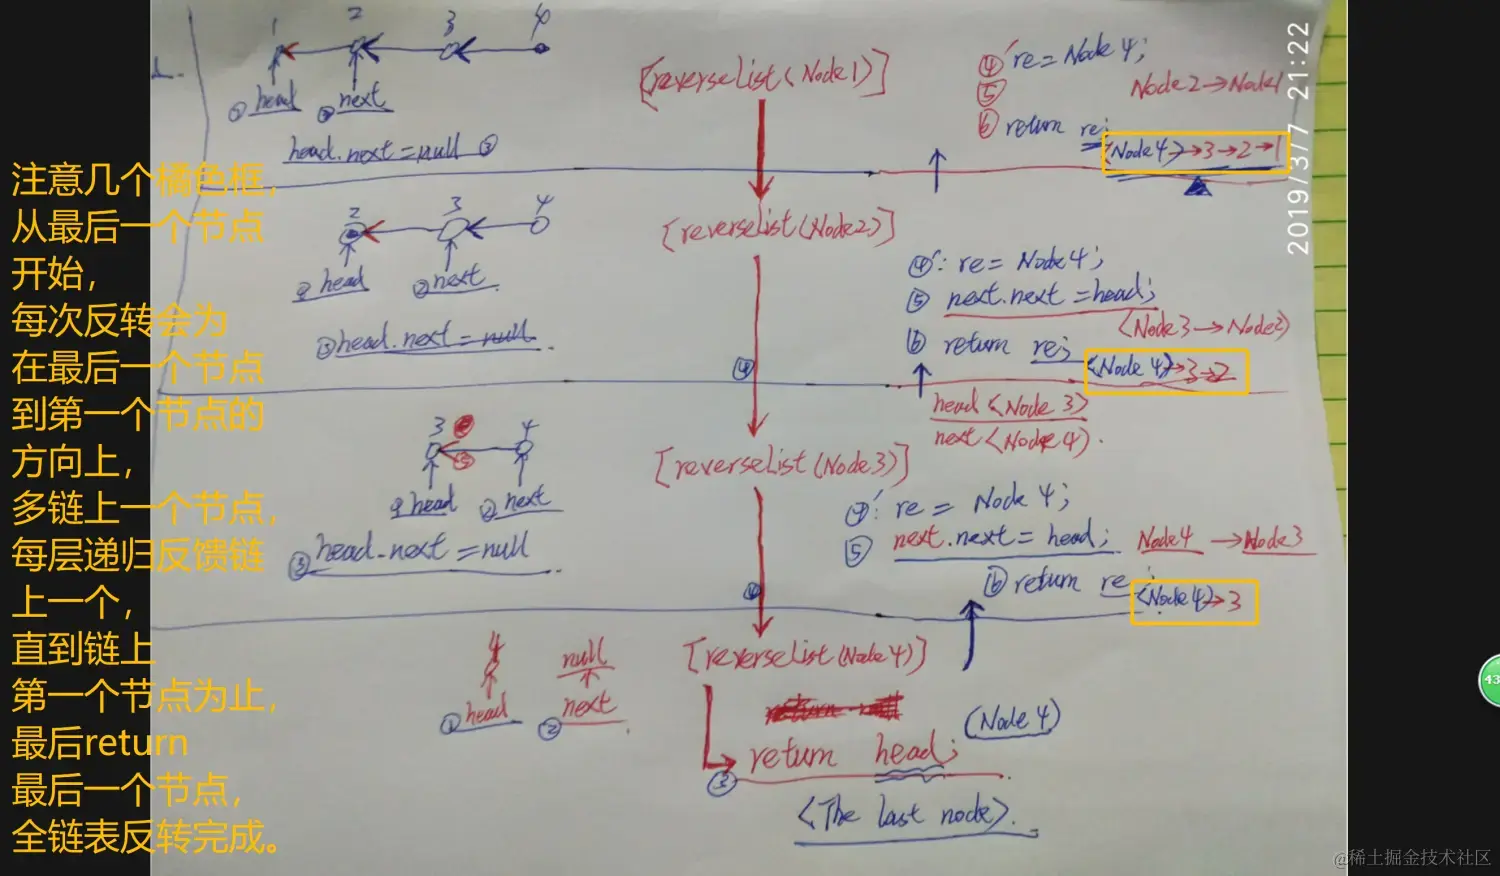 注意几个橘色框,
从最后一个节点
开始,
每次反转会为
在最后一个节点
到第一个节点的
方向上,
多链上一个节点,
每层递归反馈链
上一个,
直到链上
第一个节点为止,
最后return
最后一个节点,
全链表反转完成。
1 2 3 4
① head ② next
head.next=null ③
[reverselist(Node1)]
④' re=Node 4;
⑤ Node2→Node1
⑥ return re;
(Node4)→3→2→1
2019/3/7 21:22
2 3 4
① head ② next
③ head.next=null
[reverselist(Node2)]
④': re= Node 4;
⑤ next.next=head;
(Node3→Node2)
⑥ return re;
(Node 4)→3→2
④
head<Node 3>
next<Node4>.
3 4
① head ② next
③ head.next=null
[reverselist(Node3)]
④': re= Node 4;
⑤ next.next= head; Node4→Node3
⑥ return re;
(Node4)→3
④
4 null
① head ② next
[reverselist(Node4)]
③ return head; (Node 4)
<The last node>.
@稀土掘金技术社区
43